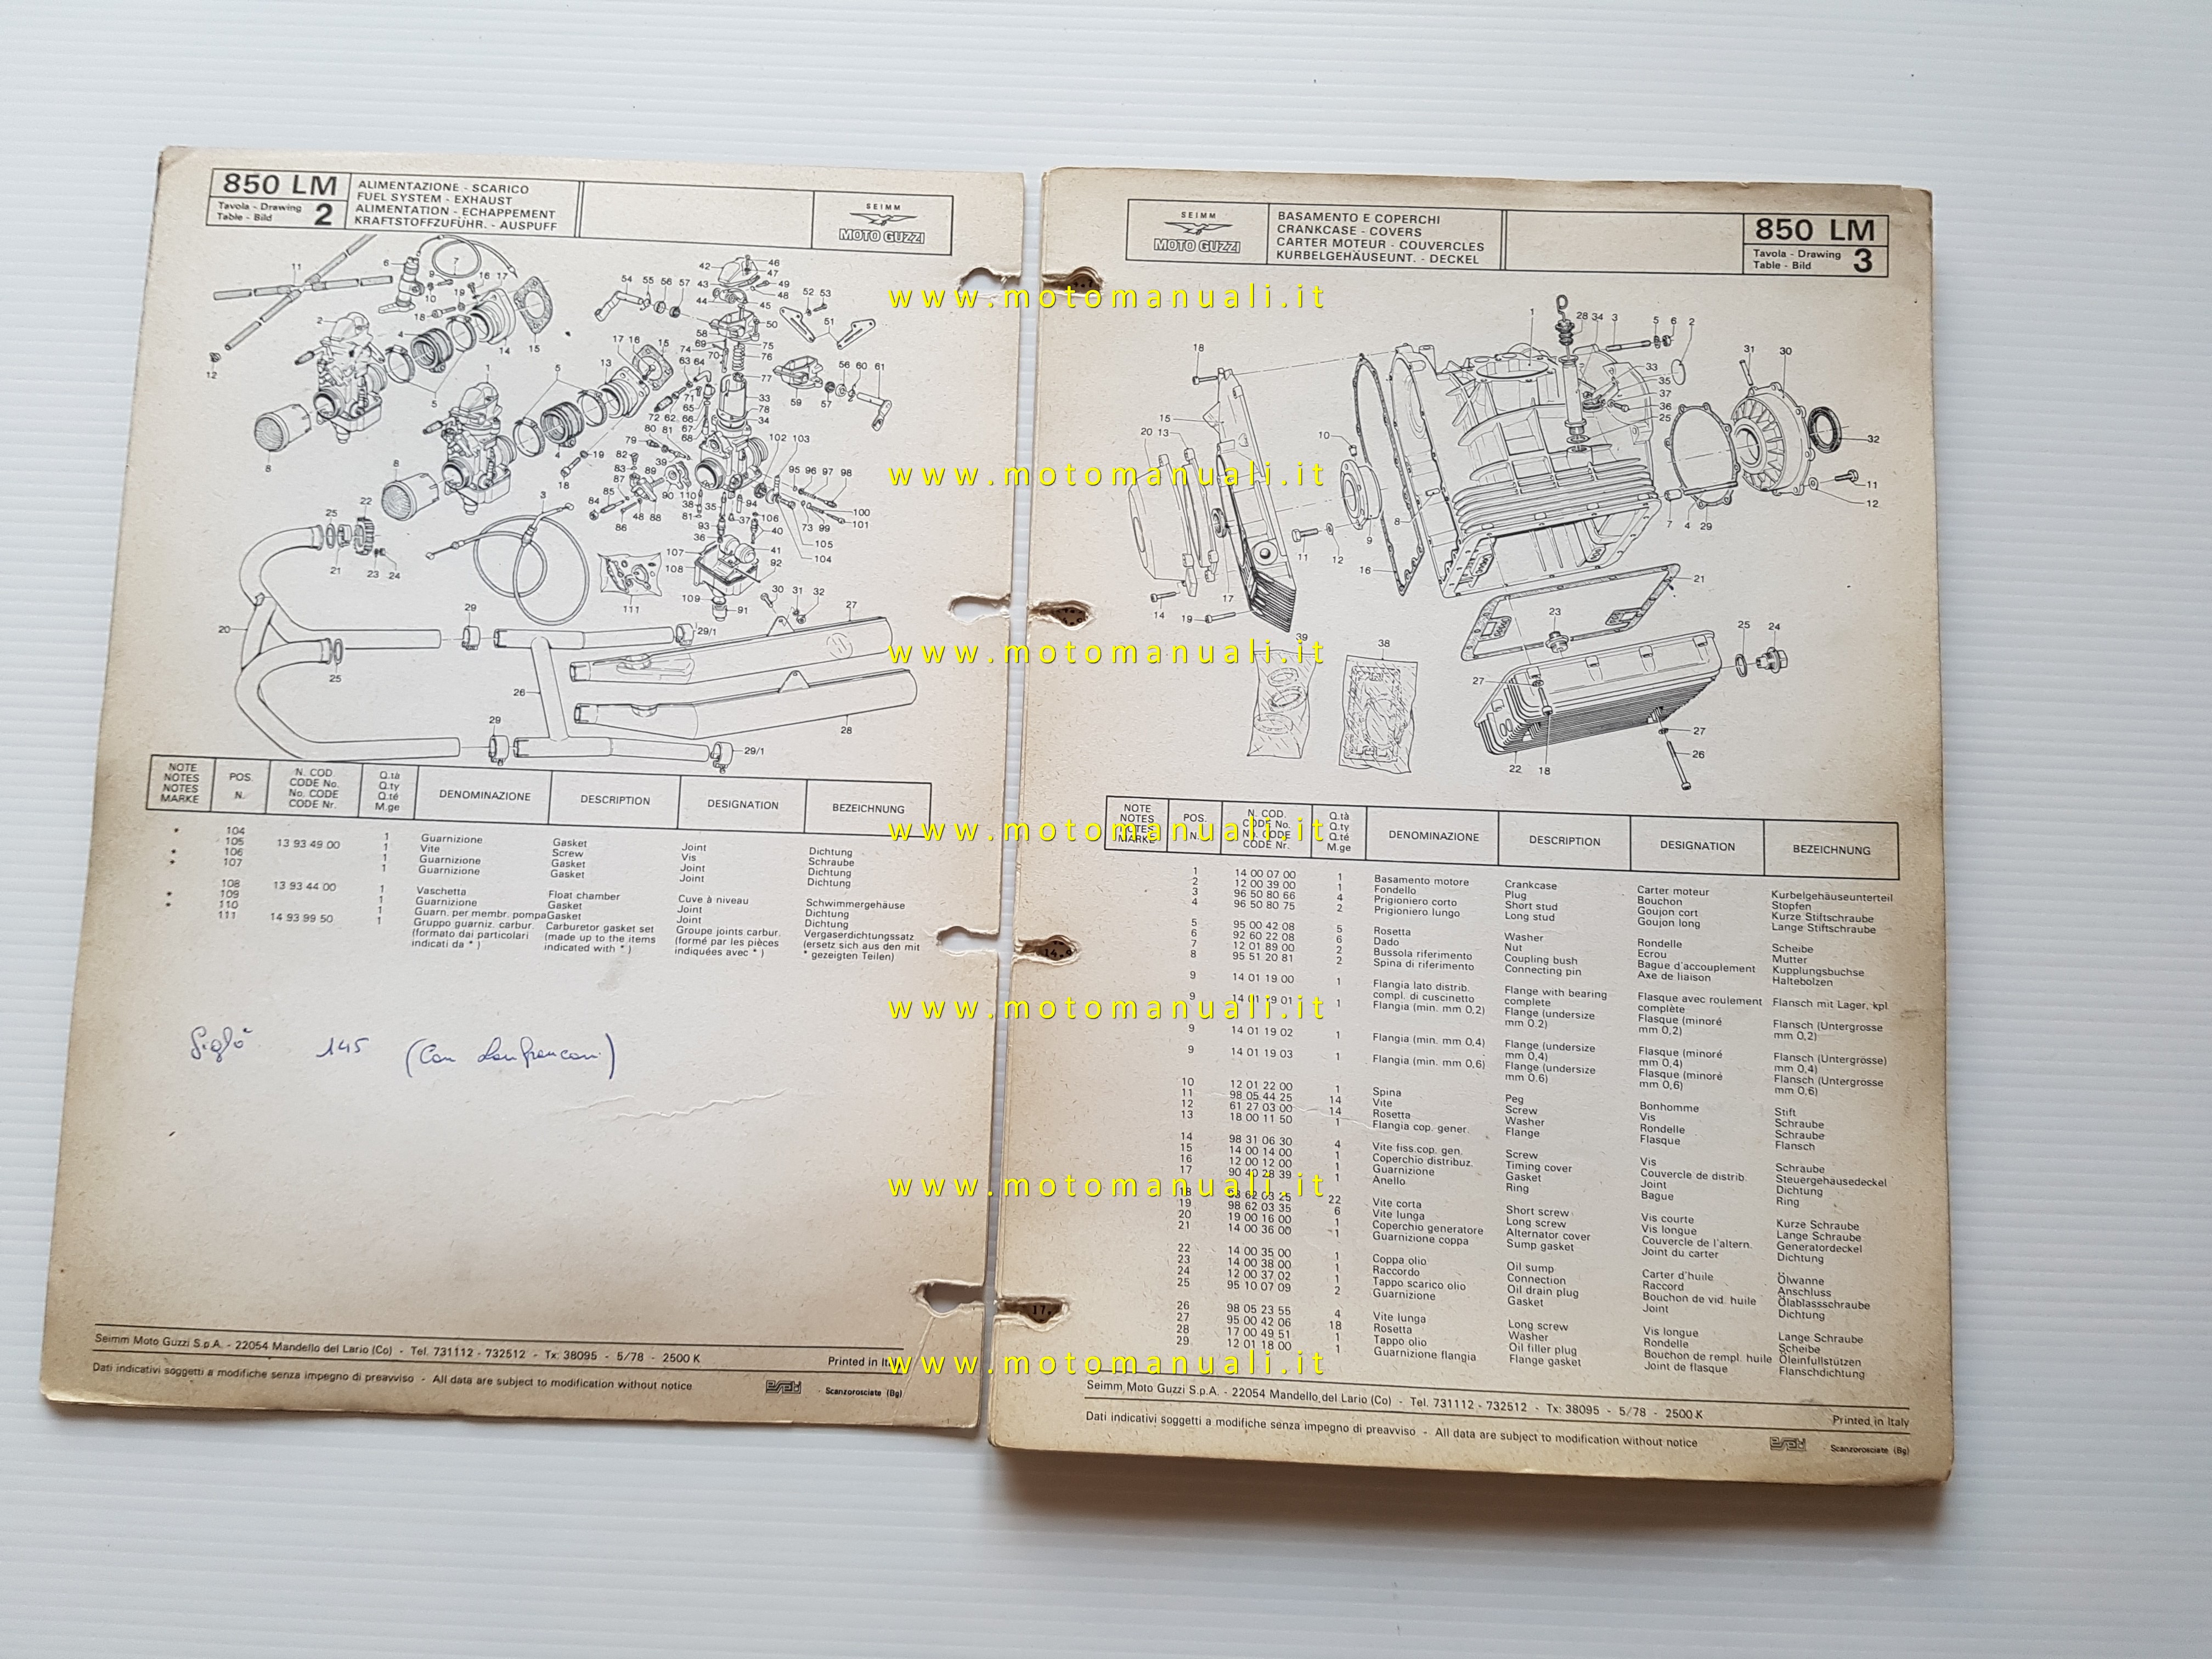 850 LM
Tavola - Drawing
Table - Bild
2
ALIMENTAZIONE - SCARICO
FUEL SYSTEM - EXHAUST
ALIMENTATION - ECHAPPEMENT
KRAFTSTOFFZUFÜHR. - AUSPUFF
SEIMM
MOTO GUZZI
NOTE
NOTES
NOTES
MARKE
POS.
N.
N. COD.
CODE No.
No. CODE
CODE Nr.
Q.tà
Q.ty
Q.té
M.ge
DENOMINAZIONE
DESCRIPTION
DESIGNATION
BEZEICHNUNG
* 104 1 Guarnizione Gasket Joint Dichtung
105 13 93 49 00 1 Vite Screw Vis Schraube
* 106 1 Guarnizione Gasket Joint Dichtung
* 107 1 Guarnizione Gasket Joint Dichtung
108 13 93 44 00 1 Vaschetta Float chamber Cuve à niveau Schwimmergehäuse
* 109 1 Guarnizione Gasket Joint Dichtung
* 110 1 Guarn. per membr. pompa Gasket Joint Dichtung
111 14 93 99 50 1 Gruppo guarniz. carbur. Carburetor gasket set Groupe joints carbur. Vergaserdichtungssatz
(formato dai particolari (made up to the items (formé par les pièces (ersetz sich aus den mit
indicati da * ) indicated with * ) indiquées avec * ) * gezeigten Teilen)
145 (Con
Seimm Moto Guzzi S.p.A. - 22054 Mandello del Lario (Co) - Tel. 731112 - 732512 - Tx: 38095 - 5/78 - 2500 K
Printed in Italy
Dati indicativi soggetti a modifiche senza impegno di preavviso - All data are subject to modification without notice
Scanzorosciate (Bg)
SEIMM
MOTO GUZZI
BASAMENTO E COPERCHI
CRANKCASE - COVERS
CARTER MOTEUR - COUVERCLES
KURBELGEHÄUSEUNT. - DECKEL
850 LM
Tavola - Drawing
Table - Bild
3
NOTE
NOTES
NOTES
MARKE
POS.
N.
N. COD.
CODE No.
No. CODE
CODE Nr.
Q.tà
Q.ty
Q.té
M.ge
DENOMINAZIONE
DESCRIPTION
DESIGNATION
BEZEICHNUNG
1 14 00 07 00 1 Basamento motore Crankcase Carter moteur Kurbelgehäuseunterteil
2 12 00 39 00 1 Fondello Plug Bouchon Stopfen
3 96 50 80 66 4 Prigioniero corto Short stud Goujon cort Kurze Stiftschraube
4 96 50 80 75 2 Prigioniero lungo Long stud Goujon long Lange Stiftschraube
5 95 00 42 08 5 Rosetta Washer Rondelle Scheibe
6 92 60 22 08 6 Dado Nut Ecrou Mutter
7 12 01 89 00 2 Bussola riferimento Coupling bush Bague d'accouplement Kupplungsbuchse
8 95 51 20 81 2 Spina di riferimento Connecting pin Axe de liaison Haltebolzen
9 14 01 19 00 1 Flangia lato distrib. Flange with bearing Flasque avec roulement Flansch mit Lager, kpl.
compl. di cuscinetto complete complète
9 14 01 19 01 1 Flangia (min. mm 0,2) Flange (undersize Flasque (minoré Flansch (Untergrosse
mm 0.2) mm 0,2) mm 0,2)
9 14 01 19 02 1 Flangia (min. mm 0,4) Flange (undersize Flasque (minoré Flansch (Untergrösse)
mm 0,4) mm 0,4) mm 0,4)
9 14 01 19 03 1 Flangia (min. mm 0,6) Flange (undersize Flasque (minoré Flansch (Untergrösse
mm 0.6) mm 0,6) mm 0,6)
10 12 01 22 00 1 Spina Peg Bonhomme Stift
11 98 05 44 25 14 Vite Screw Vis Schraube
12 61 27 03 00 14 Rosetta Washer Rondelle Schraube
13 18 00 11 50 1 Flangia cop. gener. Flange Flasque Flansch
14 98 31 06 30 4 Vite fiss.cop. gen. Screw Vis Schraube
15 14 00 14 00 1 Coperchio distribuz. Timing cover Couvercle de distrib. Steuergehäusedeckel
16 12 00 12 00 1 Guarnizione Gasket Joint Dichtung
17 90 40 28 39 1 Anello Ring Bague Ring
18 98 62 03 25 22 Vite corta Short screw Vis courte Kurze Schraube
19 98 62 03 35 6 Vite lunga Long screw Vis longue Lange Schraube
20 19 00 16 00 1 Coperchio generatore Alternator cover Couvercle de l'altern. Generatordeckel
21 14 00 36 00 1 Guarnizione coppa Sump gasket Joint du carter Dichtung
22 14 00 35 00 1 Coppa olio Oil sump Carter d'huile Ölwanne
23 14 00 38 00 1 Raccordo Connection Raccord Anschluss
24 12 00 37 02 1 Tappo scarico olio Oil drain plug Bouchon de vid. huile Ölablassschraube
25 95 10 07 09 2 Guarnizione Gasket Joint Dichtung
26 98 05 23 55 4 Vite lunga Long screw Vis longue Lange Schraube
27 95 00 42 06 18 Rosetta Washer Rondelle Scheibe
28 17 00 49 51 1 Tappo olio Oil filler plug Bouchon de rempl. huile Öleinfullstützen
29 12 01 18 00 1 Guarnizione flangia Flange gasket Joint de flasque Flanschdichtung
Seimm Moto Guzzi S.p.A. - 22054 Mandello del Lario (Co) - Tel. 731112 - 732512 - Tx: 38095 - 5/78 - 2500 K
Printed in Italy
Dati indicativi soggetti a modifiche senza impegno di preavviso - All data are subject to modification without notice
Scanzorosciate (Bg)
www.motomanuali.it
www.motomanuali.it
www.motomanuali.it
www.motomanuali.it
www.motomanuali.it
www.motomanuali.it
www.motomanuali.it